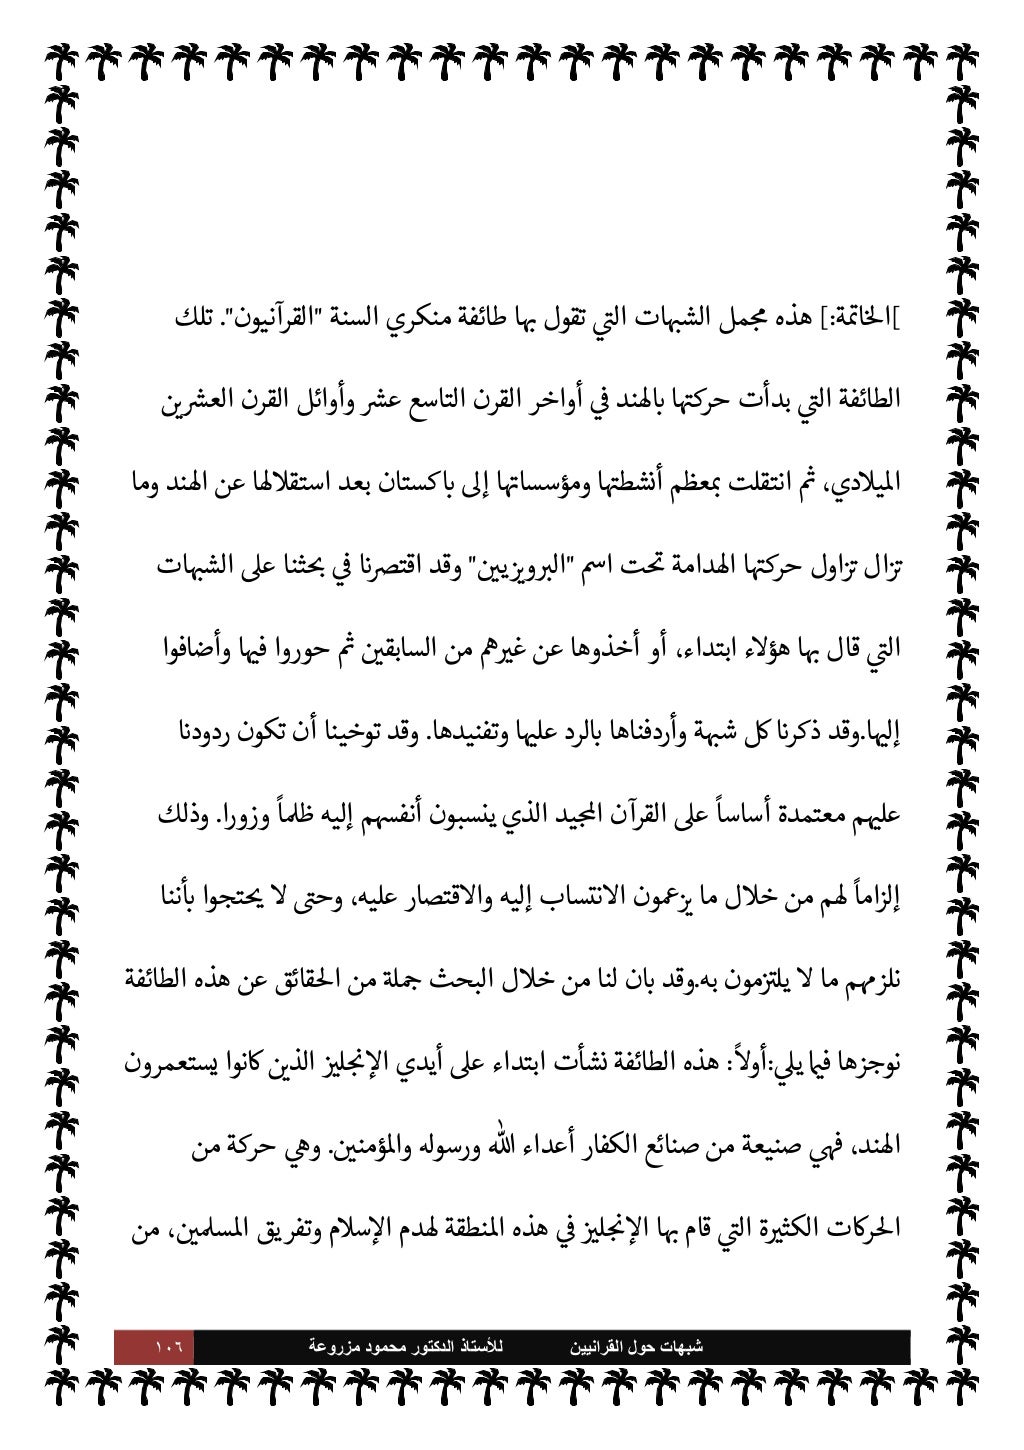 ]الخاتمة:] هذه مجمل الشبهات التي تقول بها طائفة منكري السنة "القرآنيون". تلك
الطائفة التي بدأت حركتها بالهند في أواخر القرن التاسع عشر وأوائل القرن العشرين
الميلادي، ثم انتقلت بمعظم أنشطتها ومؤسساتها إلى باكستان بعد استقلالها عن الهند وما
تزال تزاول حركتها الهدامة تحت اسم "البرويزيين" وقد اقتصرنا في بحثنا على الشبهات
التي قال بها هؤلاء ابتداء، أو أخذوها عن غيرهم من السابقين ثم حوروا فيها وأضافوا
إليها.وقد ذكرنا كل شبهة وأردفناها بالرد عليها وتفنيدها. وقد توخينا أن تكون ردودنا
عليهم معتمدة أساساً على القرآن المجيد الذي ينسبون أنفسهم إليه ظلماً وزورا. وذلك
إلزاماً لهم من خلال ما يزعمون الانتساب إليه والاقتصار عليه، وحتى لا يحتجوا بأننا
نلزمهم ما لا يلتزمون به.وقد بان لنا من خلال البحث جملة من الحقائق عن هذه الطائفة
نوجزها فيما يلي:أولاً: هذه الطائفة نشأت ابتداء على أيدي الإنجليز الذين كانوا يستعمرون
الهند، فهي صنيعة من صنائع الكفار أعداء الله ورسوله والمؤمنين. وهي حركة من
الحركات الكثيرة التي قام بها الإنجليز في هذه المنطقة لهدم الإسلام وتفريق المسلمين، من
شبهات حول القرانيين للأستاذ الدكتور محمود مزروعة ١٠٦